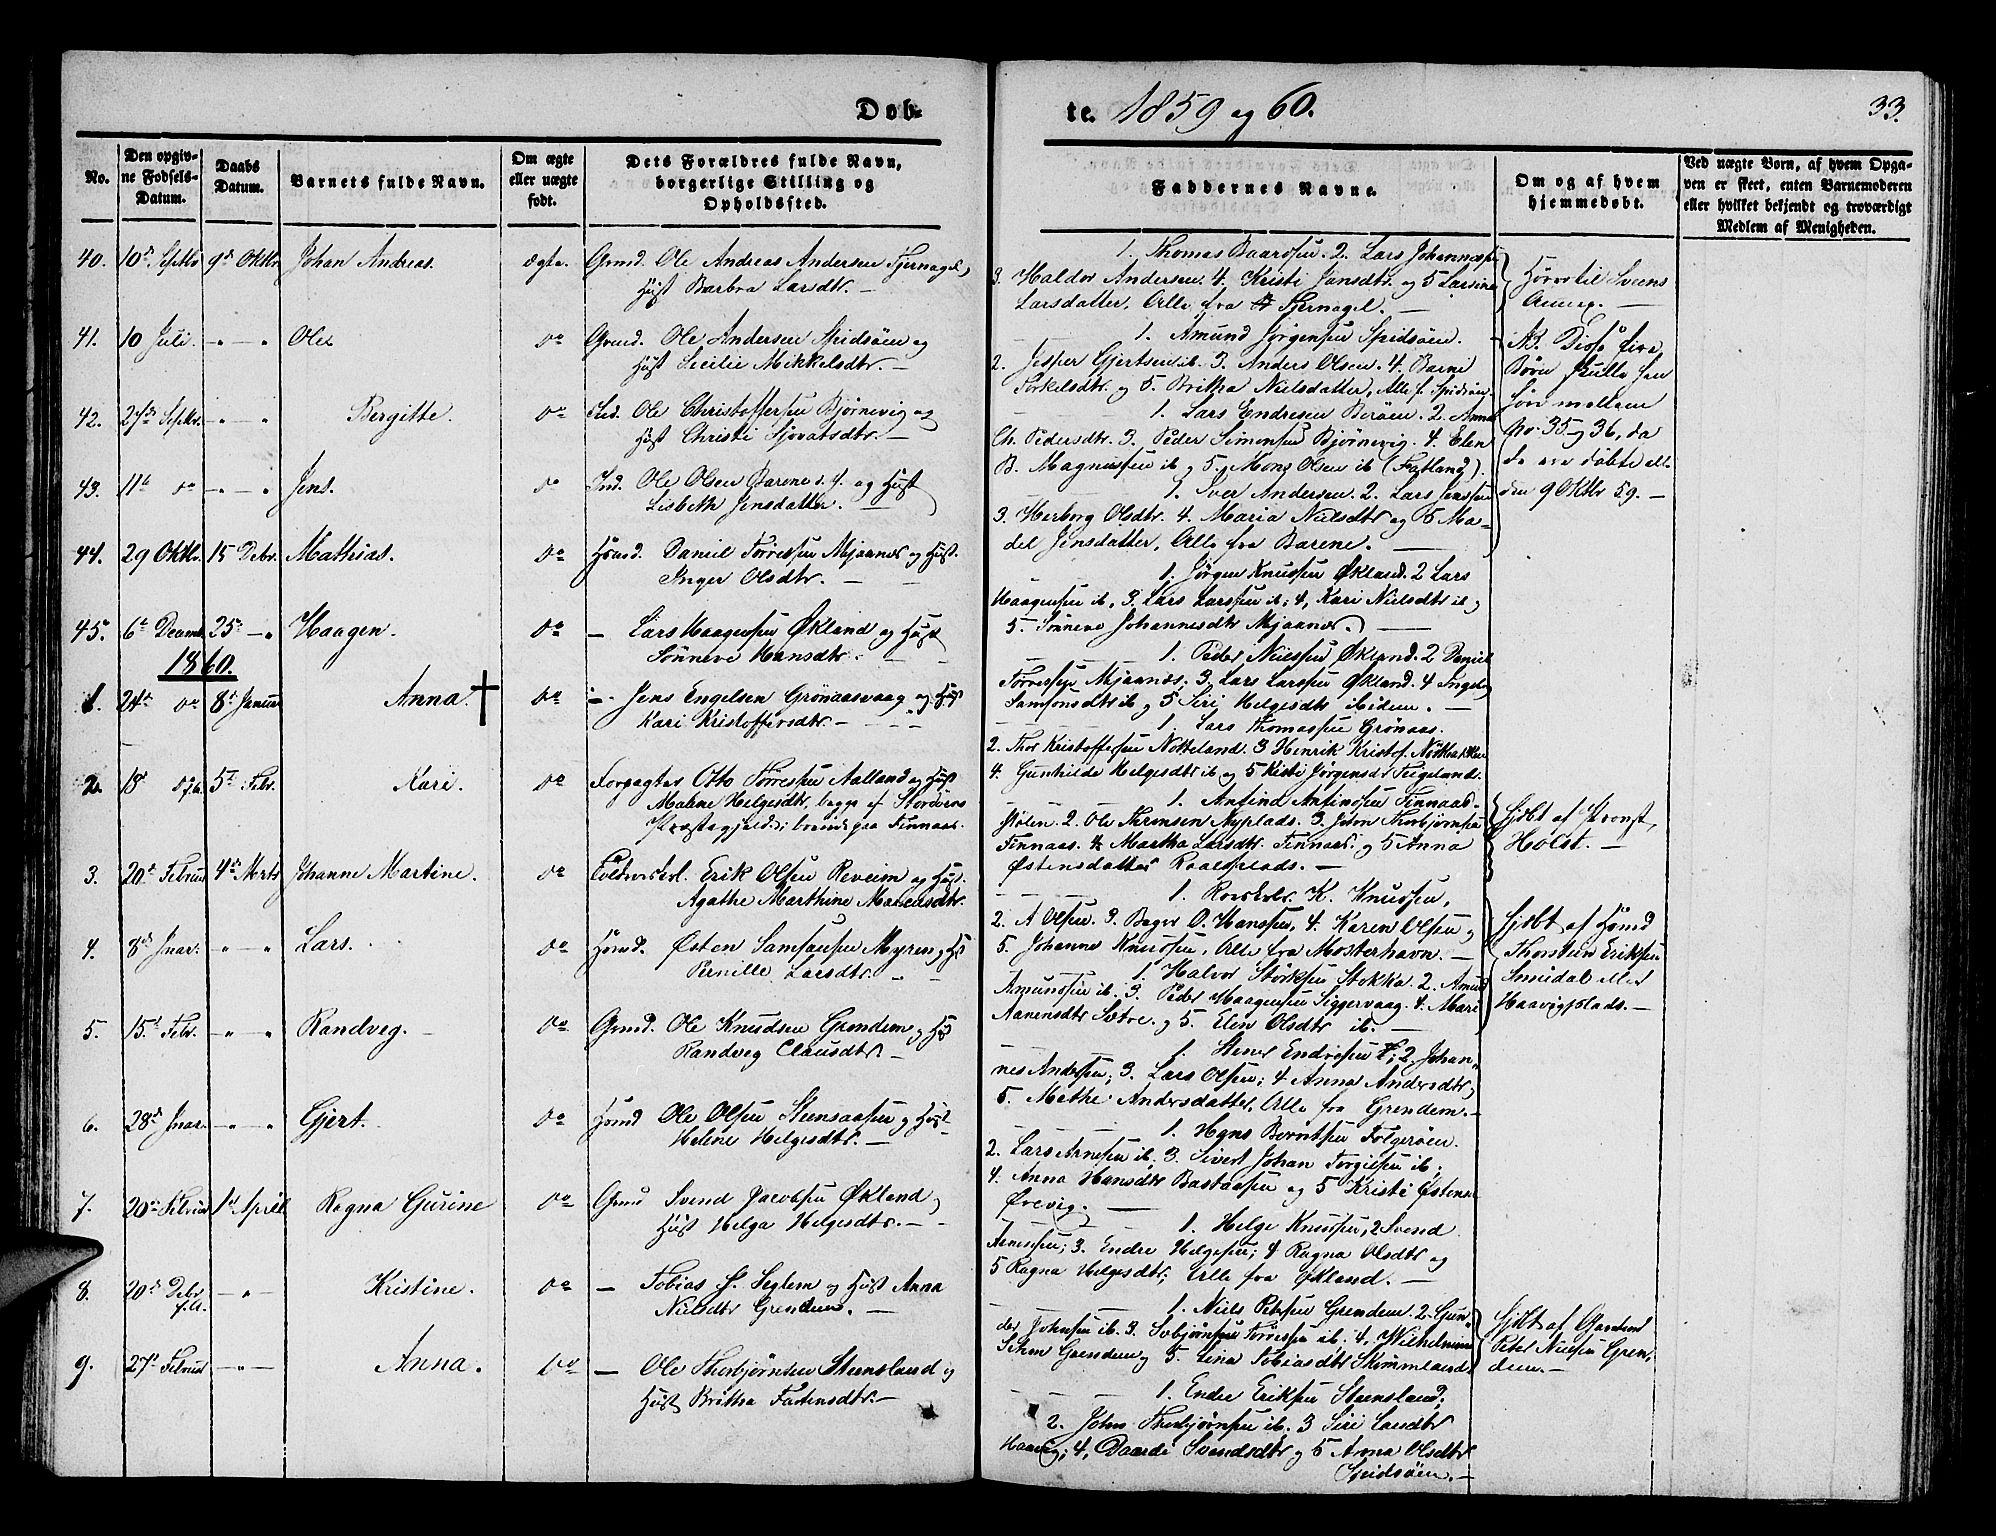 Døb-
te. 1859 og 60.
33.
No.
Den opgiv-
ne Fødsels-
Datum.
Daabs
Datum.
Barnets fulde Navn.
Om ægte
eller uægte
født.
Dets Forældres fulde Navn,
borgerlige Stilling og
Opholdssted.
Faddernes Navne.
Om og af hvem
hjemmedøbt.
Ved uægte Børn, af hvem Opga-
ven er skeet, enten Barnemoderen
eller hvilket bekjendt og troværdigt
Medlem af Menigheden.
40. 10de Septbr. 9de Oktbr. Johan Andreas. ægte. Grmd. Ole Andreas Andersen Tjernagel,
Hust Barbra Larsdtr. —
1. Thomas Baardsen. 2. Lars Johannesen
3. Haldor Andersen. 4. Kristi Jansdtr. og 5 Larsine
Larsdatter, Alle fra Tjernagel. —
Hører til Sveens
Annex. —
41. 10 Juli. — " Ole do Grmd. Ole Andersen Spidsöen og
Hust Cecilie Mikkelsdtr. —
1. Amund Jørgensen Spidsöen.
2. Jesper Gjertsen ib. 3. Anders Olsen. 4. Barne
Torkelsdtr. og 5. Britha Nielsdatter, Alle f. Spidsöen
NB. Disse fire
Børn skulle hen-
føres mellem
No. 35 og 36, da
de ere døbte alle
den 9 Oktbr 59. —
42. 27de Septbr. — " Bergitte. do Ind. Ole Christoffersen Bjørnevig og
Hust Christi Sjovatsdtr. —
1. Lars Endresen Børøen. 2. Anna
Ch. Pedersdtr. 3. Peder Simonsen Bjørnevig. 4. Elen
B. Magnussen ib og 5. Mons Olsen ib (Fatland).
43. 11te do — " Jens. do Ind. Ole Olsen Barene s. f. og Hust
Lisbeth Jensdatter. —
1. Siver Andersen. 2. Lars Jenssen
3. Herborg Olsdtr. 4. Maria Nielsdtr og 5 Ma-
del Jensdatter, Alle fra Barene. —
44. 29 Oktbr. 15 Debr. Mathias. do Hsmd. Daniel Tørressen Mjaanes og Hust.
Inger Olsdtr. —
1. Jørgen Knudsen Økland. 2 Lars
Haagensen ib, 3. Lars Larssen ib; 4, Kari Nielsdtr ib og
5. Sönneve Johannesdtr Mjaanes. —
45. 6te Decemb. 25de —" Haagen. do — Lars Haagensen Økland og Hust
Sönneve Hansdtr. —
1. Peder Nielssen Økland. 2 Daniel
Tørressen Mjaanes. 3. Lars Larssen Økland. 4 Ingeb.
Samsonsdtr ib og 5 Siri Helgesdtr ibidem. —
1860.
1. 24de do 8de Januar Anna. † do — Jens Engelsen Grönaasvaag og Hust
Kari Kristoffersdtr —
1. Lars Thomassen Grönaas.
2. Thor Kristoffersen Notteland. 3 Henrik Kristof.
4. Gunhilde Helgesdtr ib og 5 Kisti Jörgensdtr Teigeland.
2. 18de 5te Febr. Kari. do Forpagter Otto Tørressen Aalland og Hust
Malene Helgesdtr, begge af Stordöens
Præstegjeld; boende paa Finnaas.
1. Anfind Anfindsen Finnaas-
stölen. 2. Ole Thrensen Nyplads. 3. John Thorbjørnsen
Finnaas. 4 Martha Larsdtr. Finnaas; og 5 Anna
Østensdatter Raaelplads. —
Hjdbt af Provst
Holst. —
3. 20de Februar 4de Marts Johanne Martine. do Toldroerskrl. Erik Olsen Reveim og Hust.
Agathe Marthine Martensdtr.
1. Roerskrl. K. Knudsen,
2. A Olsen. 3. Bager O. Hanssen, 4. Karen Olsen og
5. Johanne Knudsen, Alle fra Mosterhavn. —
4. 8de Jnar. " " Lars. do Hsmd. Østen Samsonsen Myren og Hs
Pernille Larsdtr. —
1. Halvor Störksen Stokka. 2. Amund
Amundsen ib. 3. Peder Haagensen Siggervaag. 4. Mari
Aanensdtr Sætre. og 5. Elen Olsdtr ib. —
Hjdbt af Hsmd
Thorstein Eriksen
Smidal eller
Haavigsplads. —
5. 15de Febr. " " Randveg. — do Grmd. Ole Knudsen Grendem og Hs
Randveg Clausdtr —
1. Stener Endresen; 2. Johan-
nes Andersen; 3. Lars Olsen; 4 Anna Andersdtr og
5. Mathe Andersdatter, Alle fra Grendem. —
6. 28de Jnar. — " Gjert. do Hsmd Ole Olsen Steensaasen og Hust
Helene Helgesdtr. —
1. Hans Berntsen Folgerøen.
2. Lars Arnesen ib. 3 Sivert Johan Torgilsen ib;
4. Anna Hansdtr Bastaasen og 5 Kristi Østens
Ørevig. —
7. 20de Februar 1ste April Ragna Gurine do Grmd Svend Jacobsen Økland og
Hust Helga Helgesdtr. —
1. Helge Knudsen, 2 Svend
Arnessen; 3. Endre Helgesen; 4 Ragna Olsdtr og
5 Ragna Helgesdtr; Alle fra Økland. —
8. 20de Debr — " — Kristine. do — Tobias S. Seglem og Hust Anna
Nielsdtr Grendem. —
1. Niels Petersen Grendem. 2. Gun-
der Johnsen ib. 3. Torbjørnsen Tørresen ib; 4, Wilhelmine
Sehm Grendem og 5. Lina Tobiasdtr Skimmeland.
Hjdbt af Gaardmd
Peter Nielsen Gren-
dem. —
9. 27de Februar — " — Anna. do — Ole Thorbjørnsen Steensland og
Hust Britha Fastensdtr. —
1. Endre Eriksen Steensland;
2. John Thorbjørnsen ib. 3 Siri Larsdtr
Haavig; 4, Daarde Svendsdtr og 5 Anna Olsdtr
Spidsöen. —